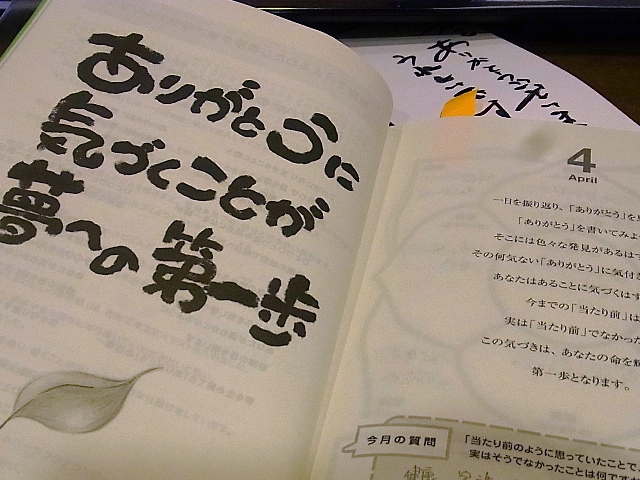 ありがとうに
気づくことが
夢への第一歩
4
April
一日を振り返り、「ありがとう」を
「ありがとう」を書いてみよ
そこには色々な発見があるは
その何気ない「ありがとう」に気付き
あなたはあることに気づくはず
今までの「当たり前」は
実は「当たり前」でなかった
この気づきは、あなたの命を
第一歩となります。
今月の質問
「当たり前のように思っていたことで、
実はそうでなかったことは何です